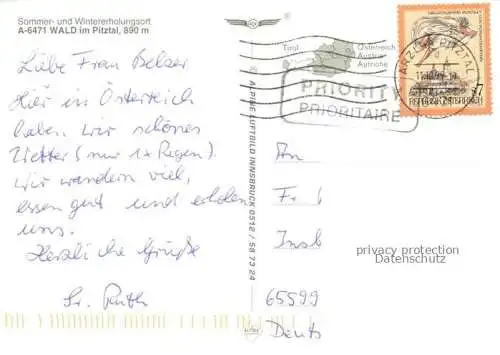 Sommer- und Wintererholungsort
A-6471 WALD im Pitztal, 890 m
Liebe Frau Belser
Hier in Österreich
haben wir schönes
Wetter (nur 1x Regen).
Wir wandern viel,
essen gut und erholen
uns.
Herzliche Grüße
Sr. Ruth
© ALPINE LUFTBILD INNSBRUCK 0512 / 58 73 24
Tirol
Österreich
Austria
Autriche
PRIORITY
PRIORITAIRE
ARZL IM PITZTAL
7
An
Fr
Insb
65599
Deuts
privacy protection
Datenschutz